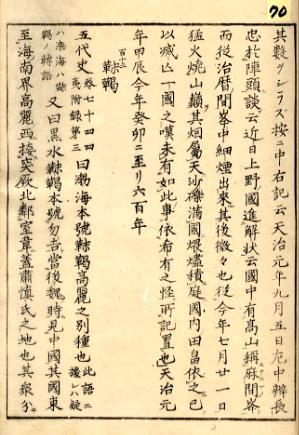 70
其數ヲシラズ按ニ中右記云天治元年九月五日左中辨長
忠於陣頭談云近日上野國進解状云國中有高山稱麻間峯
而後治暦間峯中細煙出来其後微々也從今年七月廿一日
猛火燒山巓其烟屬天沙礫滿國煨燼積庭國内田畠依之已
以滅亡一國之嘆未有如此事依希有之怪所記置也天治元
年甲辰今年癸卯ニ至リ六百年
靺鞨
五代史 卷七十四四夷附録第三 曰渤海本號靺鞨高麗之別種也 此語ニ據レハ疑
ハ渤海ハ靺鞨ノ轉語 又曰黒水靺鞨本號勿吉當後魏時見中國其國東
至海南界高麗西接突厥北鄰室韋蓋肅慎氏之地也其衆分